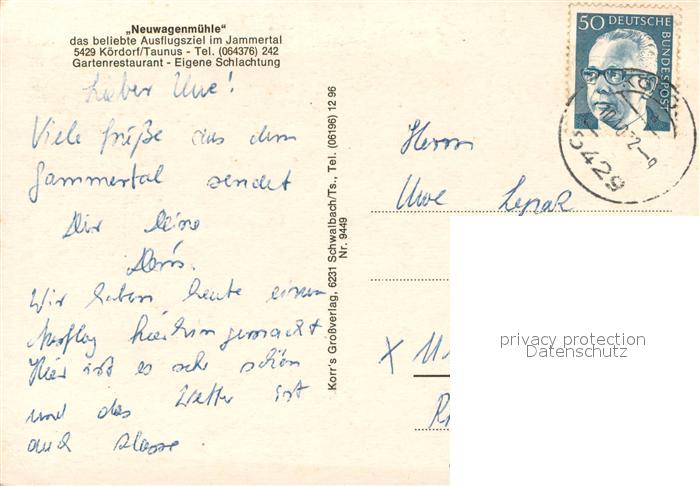 „Neuwagenmühle“
das beliebte Ausflugsziel im Jammertal
5429 Kördorf/Taunus - Tel. (064376) 242
Gartenrestaurant - Eigene Schlachtung
Lieber Uwe!
Viele Grüße aus dem
Jammertal sendet
Dir Deine
Doris.
Wir haben heute einen
Ausflug hierhin gemacht
Hier ist es sehr schön
und das Wetter ist
auch klasse.
Korr's Großverlag, 6231 Schwalbach/Ts., Tel. (06196) 12 96
Nr. 9449
50 DEUTSCHE
BUNDESPOST
5429
Herrn
Uwe
X
privacy protection
Datenschutz